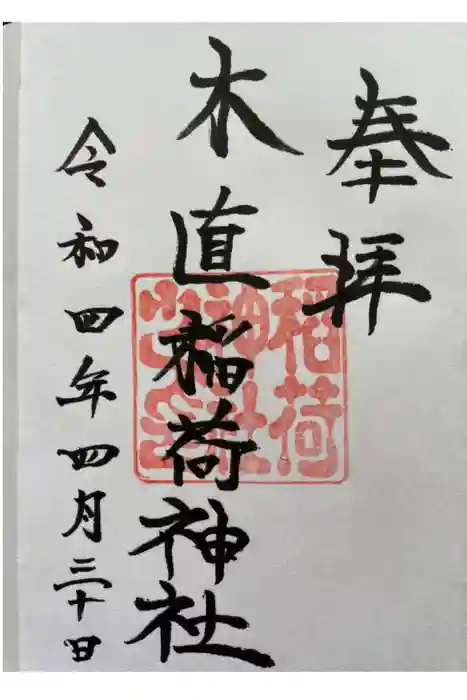 奉拝
木直稲荷神社
稲荷
神社
之印
令和四年四月三十日